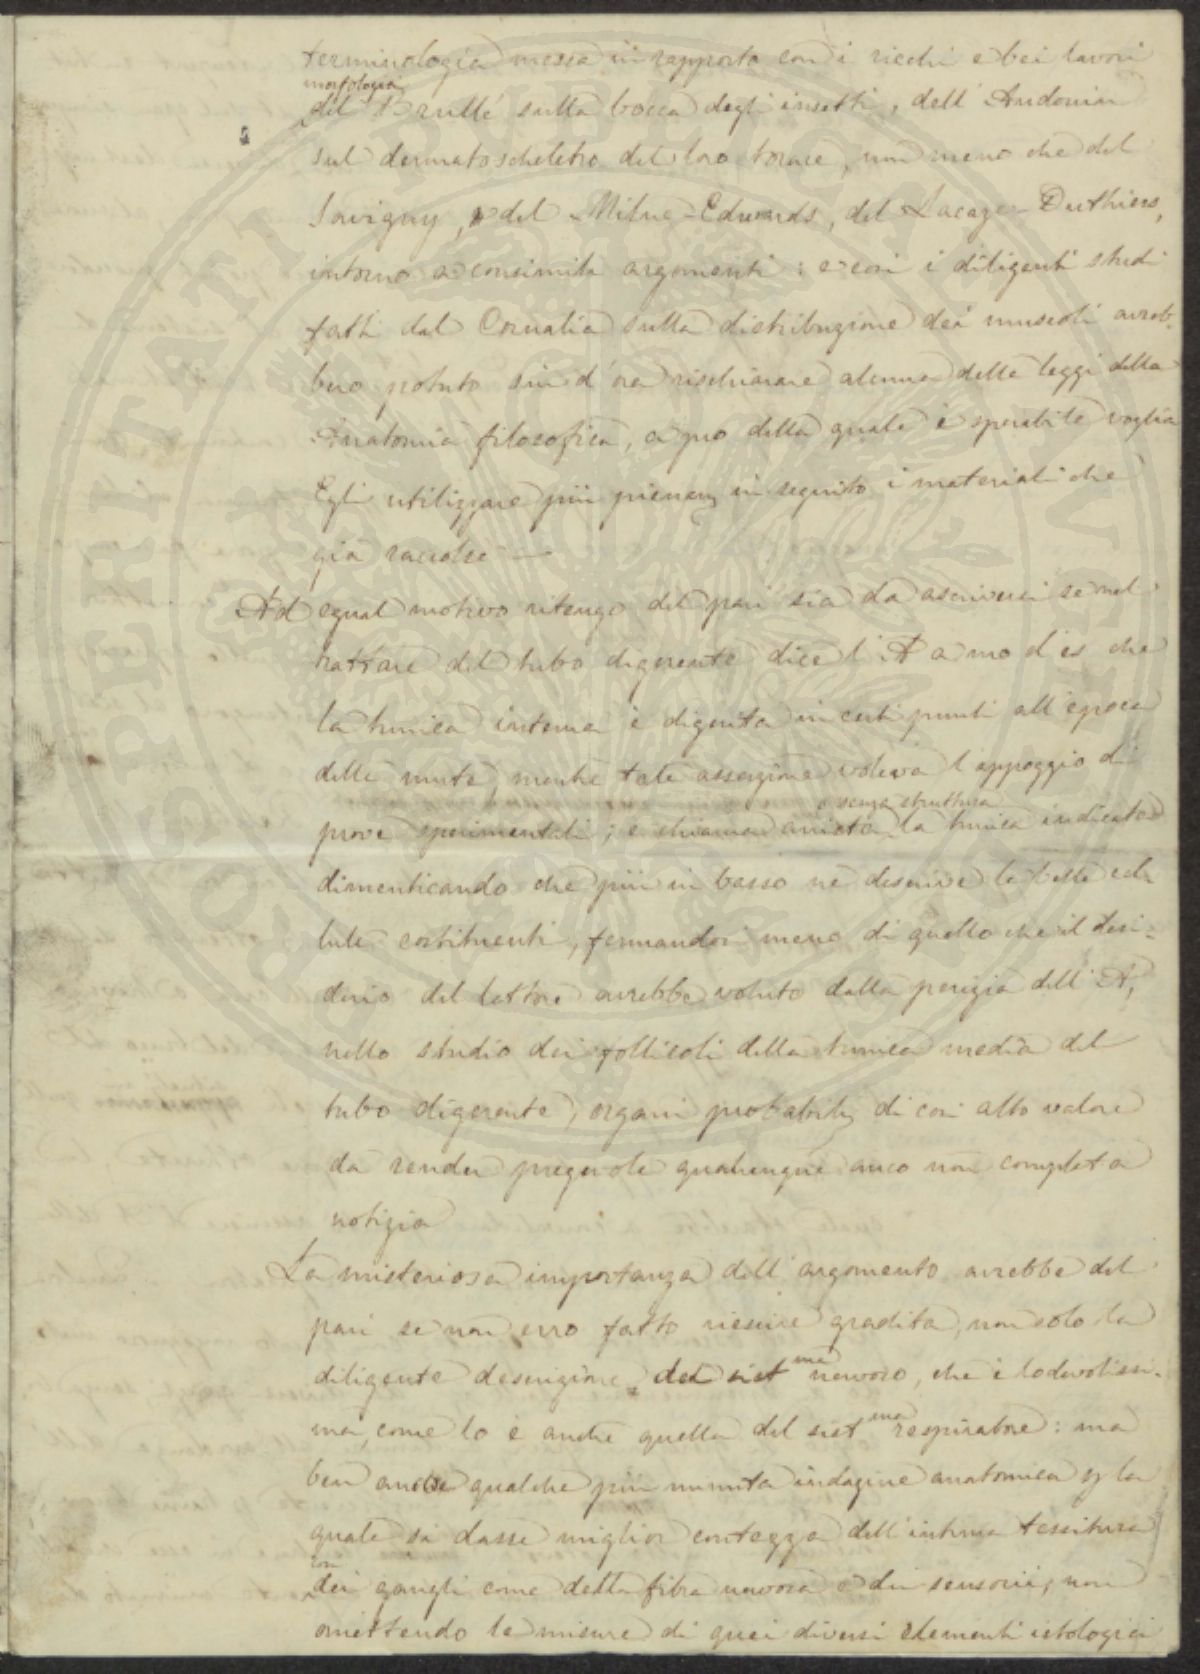 terminologia messa in rapporto con i ricchi e bei lavori
morfologici
del Brullé sulla bocca degli insetti, dell' Audouin
sul dermatoscheletro del loro torace, non meno che del
Savigny, del Milne-Edwards, del Lacaze-Duthiers,
intorno a consimili argomenti: e così i diligenti studi
fatti dal Cornalia sulla distribuzione dei muscoli avreb-
bero potuto sin d'ora rischiarare alcune delle leggi della
Anatomia filosofica, a pro della quale è sperabile voglia
Egli utilizzare più pienam in seguito i materiali che
già raccolse —
Ad egual motivo ritengo del pari sia da ascriversi se nel
trattare del tubo digerente dice l'A a mo d'es che
la tunica interna è digerita in certi punti all'epoca
delle mute, mentre tale asserzione voleva l'appoggio di
senza struttura
prove sperimentali; e chiama anista la tunica indicata
dimenticando che più in basso ne descrive le belle cel-
lule costituenti, fermandosi meno di quello che il desi-
derio del lettore avrebbe voluto dalla perizia dell'A,
nello studio dei follicoli della tunica media del
tubo digerente, organi probabilm di così alto valore
da render pregevole qualunque anco non completa
notizia
La misteriosa importanza dell'argomento avrebbe del
pari se non erro fatto riescire gradita, non solo la
diligente descrizione del sist ma nervoso, che è lodevolissi-
ma, come lo è anche quella del sist ma respiratore: ma
ben anche qualche più minuta indagine anatomica p la
quale si dasse miglior contezza dell'intima tessitura
così
dei gangli come della fibra nervosa e dei sensorii, non
omettendo le misure di quei diversi elementi istologici